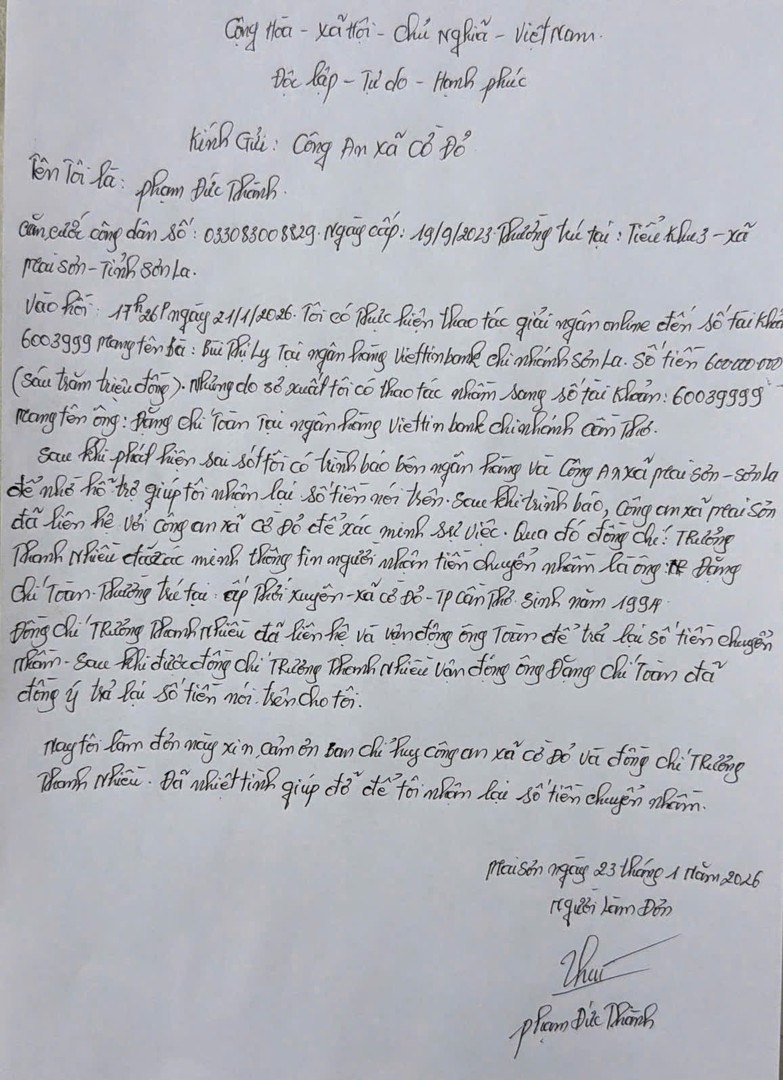 Cộng Hòa - Xã Hội - Chủ Nghĩa - Việt Nam.
Độc lập - Tự do - Hạnh phúc
Kính Gửi: Công An xã Cờ Đỏ
Tên Tôi là: Phạm Đức Thành.
Căn cước công dân số: 033083008829. Ngày cấp: 19/9/2023. Thường trú tại: Tiểu khu 3 - xã
Mai Sơn - Tỉnh Sơn La.
Vào hồi: 17h26P ngày 21/1/2026. Tôi có thực hiện thao tác giải ngân online đến số tài khoả
6003999 Mang tên Bà: Bùi Thị Ly Tại ngân hàng Viettinbank chi nhánh Sơn La. Số tiền 600.000.000
(Sáu trăm triệu đồng). Nhưng do sơ xuất tôi có thao tác nhầm sang số tài khoản: 60039999
Mang tên ông: Đặng Chí Toàn Tại ngân hàng Viettinbank chi nhánh Cần Thơ.
Sau khi phát hiện sai sót tôi có trình báo bên ngân hàng và Công An xã Mai Sơn - Sơn La
để nhờ hỗ trợ giúp tôi nhận lại số tiền nói trên. Sau khi trình báo, Công an xã Mai Sơn
đã liên hệ với Công an xã Cờ Đỏ để xác minh sự việc. Qua đó đồng chí: Trương
Thanh Nhiều đã xác minh thông tin người nhận tiền chuyển nhầm là ông Đặng
Chí Toàn. Thường trú tại: ấp Thới Xuyên - xã Cờ Đỏ - TP Cần Thơ. Sinh năm 1994.
Đồng chí Trương Thanh Nhiều đã liên hệ và vận động ông Toàn để trả lại số tiền chuyển
nhầm. Sau khi được đồng chí Trương Thanh Nhiều vận động ông Đặng Chí Toàn đã
đồng ý trả lại số tiền nói trên cho tôi.
Nay tôi làm đơn này xin cảm ơn Ban chỉ huy công an xã Cờ Đỏ và đồng chí Trương
Thanh Nhiều. Đã nhiệt tình giúp đỡ để tôi nhận lại số tiền chuyển nhầm.
Mai Sơn ngày 23 tháng 1 Năm 2026
Người Làm Đơn
Phạm Đức Thành